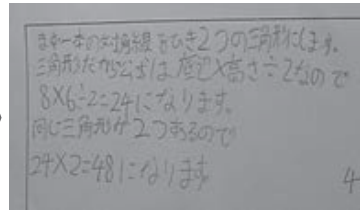 まず一本の対角線をひき2つの三角形にします。
三角形だから公式は底辺×高さ÷2なので
8×6÷2=24になります。
同じ三角形が2つあるので
24×2=48になります
4